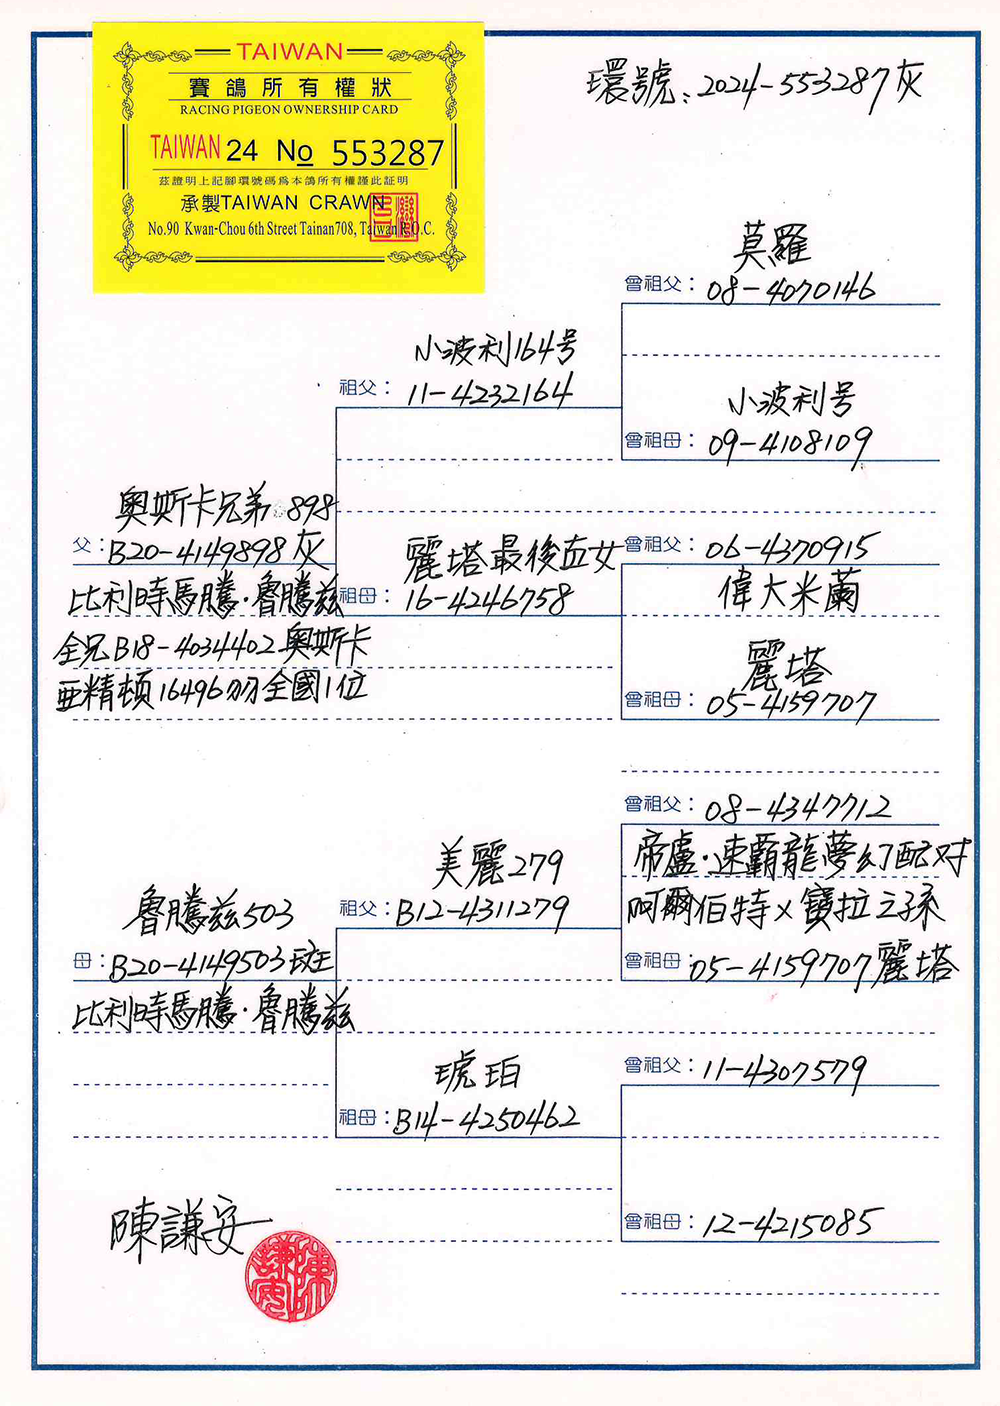 TAIWAN
賽鴿所有權狀
RACING PIGEON OWNERSHIP CARD
TAIWAN 24 No 553287
茲證明上記腳環號碼為本鴿所有權謹此証明
承製TAIWAN CRAWN
No.90 Kwan-Chou 6th Street Tainan708, Taiwan R.O.C.
環號:2024-553287灰
莫羅
曾祖父:08-4070146
小波利164号
祖父:11-4232164
小波利号
曾祖母:09-4108109
奧斯卡兄弟898
父:B20-4149898灰
比利時馬騰·魯騰茲
全兄B18-4034402奧斯卡
亞精頓16496羽全國1位
麗塔最後血女
祖母:16-4246758
曾祖父:06-4370915
偉大米蘭
麗塔
曾祖母:05-4159707
曾祖父:08-4347712
帝盧·速霸龍夢幻配对
阿爾伯特×寶拉之孫
曾祖母:05-4159707麗塔
美麗279
祖父:B12-4311279
魯騰茲503
母:B20-4149503斑
比利時馬騰·魯騰茲
琥珀
祖母:B14-4250462
曾祖父:11-4307579
曾祖母:12-4215085
陳謙安